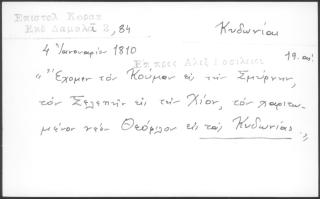 Επιστολ Κοραη
Εκδ Δαμαλᾶ 2, 84
Κυδωνίαι
4 Ἰανουαρίου 1810
19. αἰ
Επ προς Αλεξ Βασιλείου
"Ἔχομεν τὸν Κούμαν εἰς τὴν Σμύρνην,
τὸν Σελεπὴν εἰς τὴν Χίον, τὸν παραιτη-
μένον νέον Θεόφιλον εἰς τὰς Κυδωνίας"